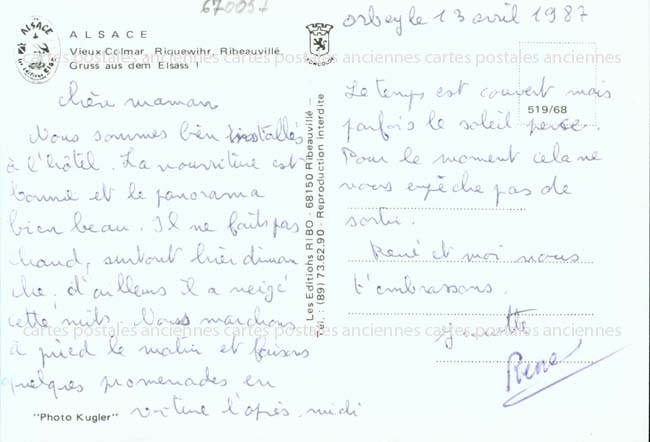 670037
ALSACE
Vieux-Colmar, Riquewihr, Ribeauvillé
Gruss aus dem Elsass !
ALSACE
cartes postales anciennes cartes postales anciennes cartes postales anciennes cartes postales anciennes
chère maman
Nous sommes bien installés
à l'hôtel. La nourriture est
bonne et le panorama
bien beau. Il ne faits pas
chaud, surtout hier diman
che, d'ailleurs il a neigé
cette nuits. Nous marchons
à pied le matin et faisons
quelques promenades en
voiture l'après-midi
"Photo Kugler"
Les Editions RIBO - 68150 Ribeauvillé -
Tél.: (89) 73.62.90 - Reproduction interdite
orbey le 13 avril 1987
519/68
Le temps est couvert mais
parfois le soleil perce.
Pour le moment cela ne
nous empêche pas de
sortir.
René et moi nous
t'embrassons.
cartes postales anciennes cartes postales anciennes cartes postales anciennes cartes postales anciennes
René